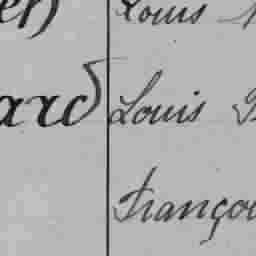 er) Louis
ard Louis
Françoi